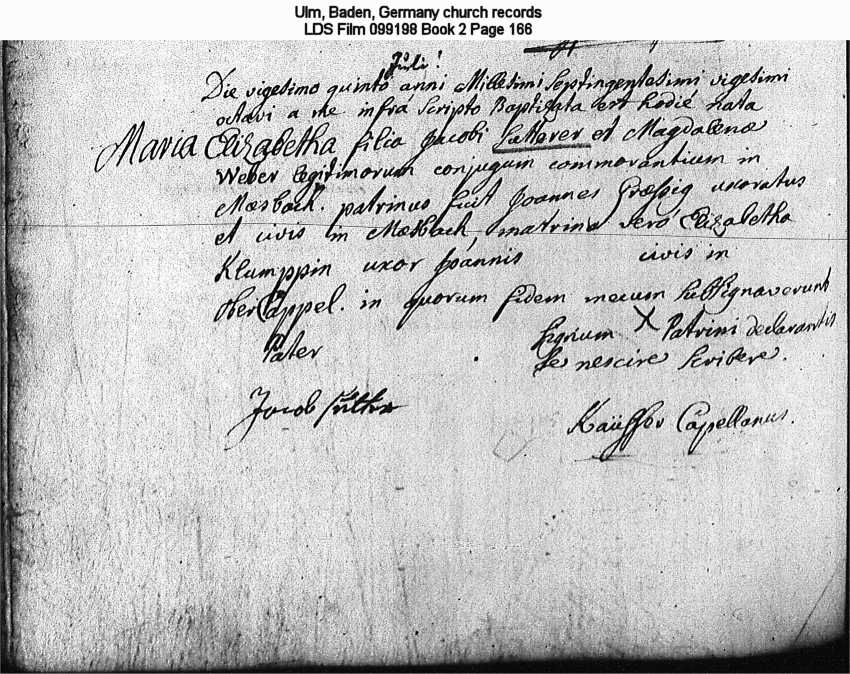 Ulm, Baden, Germany church records
LDS Film 099198 Book 2 Page 166
Juli!
Die vigesimo quinto anni Millesimi Septingentesimi vigesimi
octavi a me infra scripto Baptizata est hodie nata
Maria Elizabetha filia Jacobi et Magdalenæ
Weber legitimorum conjugum commorantium in
Mæsbach. patrinus fuit Joannes uxoratus
et civis in Mæsbach, matrina vero Elizabetha
Klumppin uxor Joannis civis in
oberCappel. in quorum fidem mecum subsignaverunt
Pater signum X Patrini declarantis
se nescire scribere.
Jacob
Capellanus.